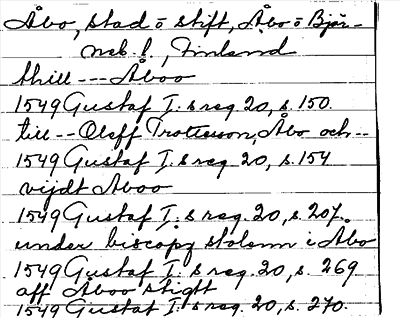 Åbo, stad o stift, Åbo o Björ-
neb. l., Finland
thill --- Åboo
1549 Gustaf I:s reg. 20, s. 150.
till -- Oleff Trottesson, Åbo och --
1549 Gustaf I:s reg. 20, s. 154
vijdt Åboo
1549 Gustaf I:s reg. 20, s. 207.
under biscopz stolenn i Åbo
1549 Gustaf I:s reg. 20, s. 269
aff Åboo stigtt
1549 Gustaf I:s reg. 20, s. 270.